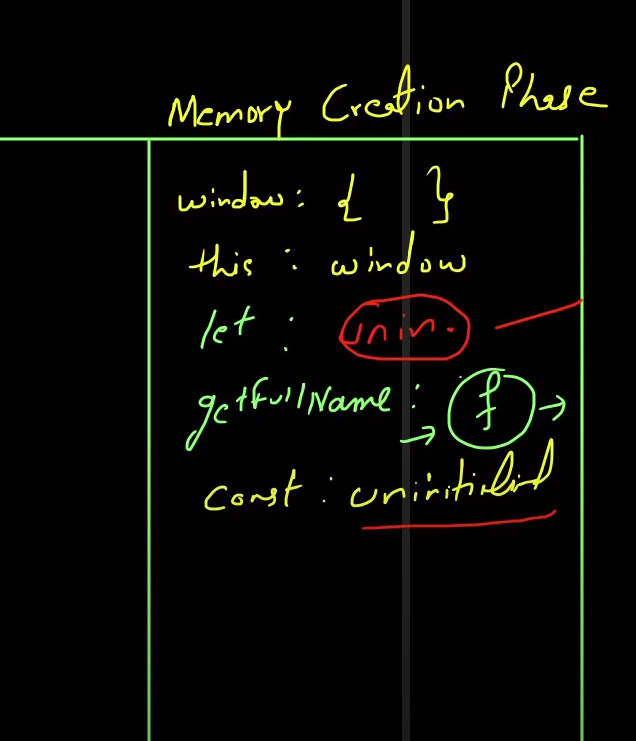 Memory Creation Phase
window : { }
this : window
let : unin.
getFullName : f
const : uninitialized